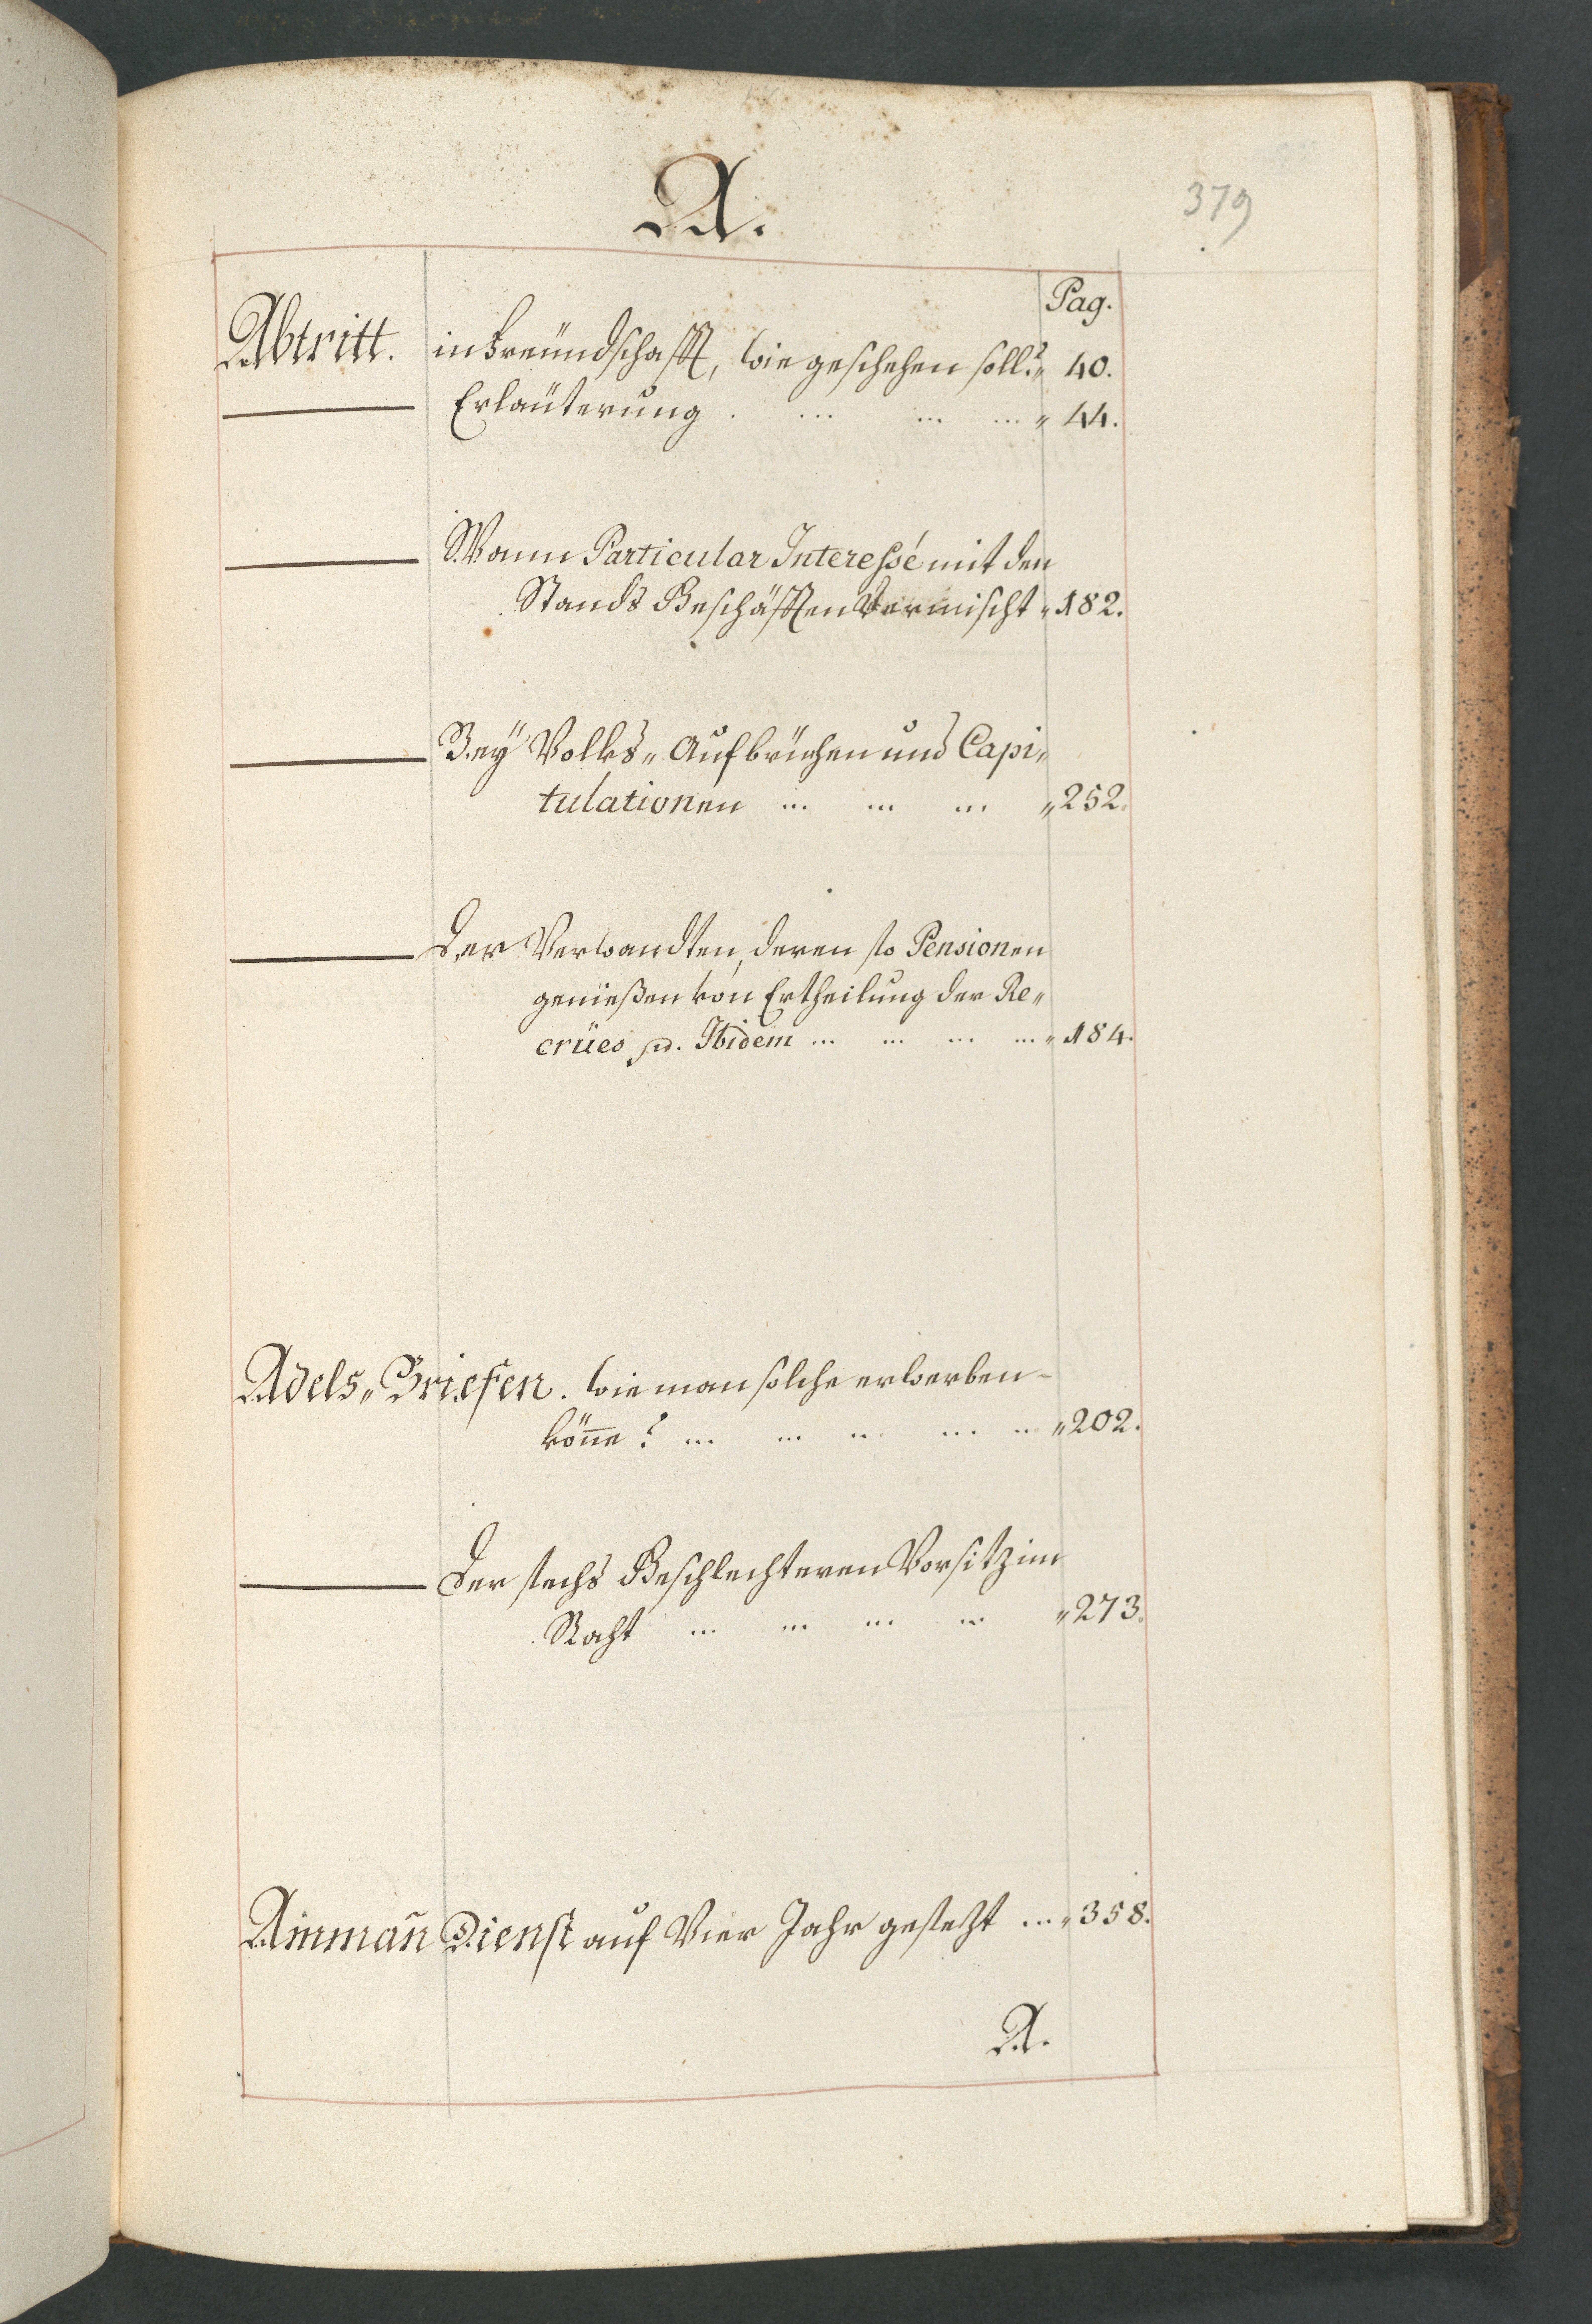 A.
379
Pag.
Abtritt. in Freündschafft, wie geschehen soll? „ 40.
Erlaüterung . ... ... ... „ 44.
Wann Particular Interessé mit den
Stands Geschäfften Vermischt „ 182.
Bey Volks„ Aufbrüchen und Capi„
tulationen ... ... ... „ 252.
Der Verwandten, deren so Pensionen
genießen von Ertheilung der Re„
crües Ibidem ... ... ... ... „ 184.
Adels„ Briefen. wie man solche erwerben
könne? ... ... ... ... ... „ 202.
Der sechs Geschlechteren Vorsitz im
Raht ... ... ... ... „ 273.
Ammañ Dienst auf Vier Jahr gesetzt ... „ 358.
A.